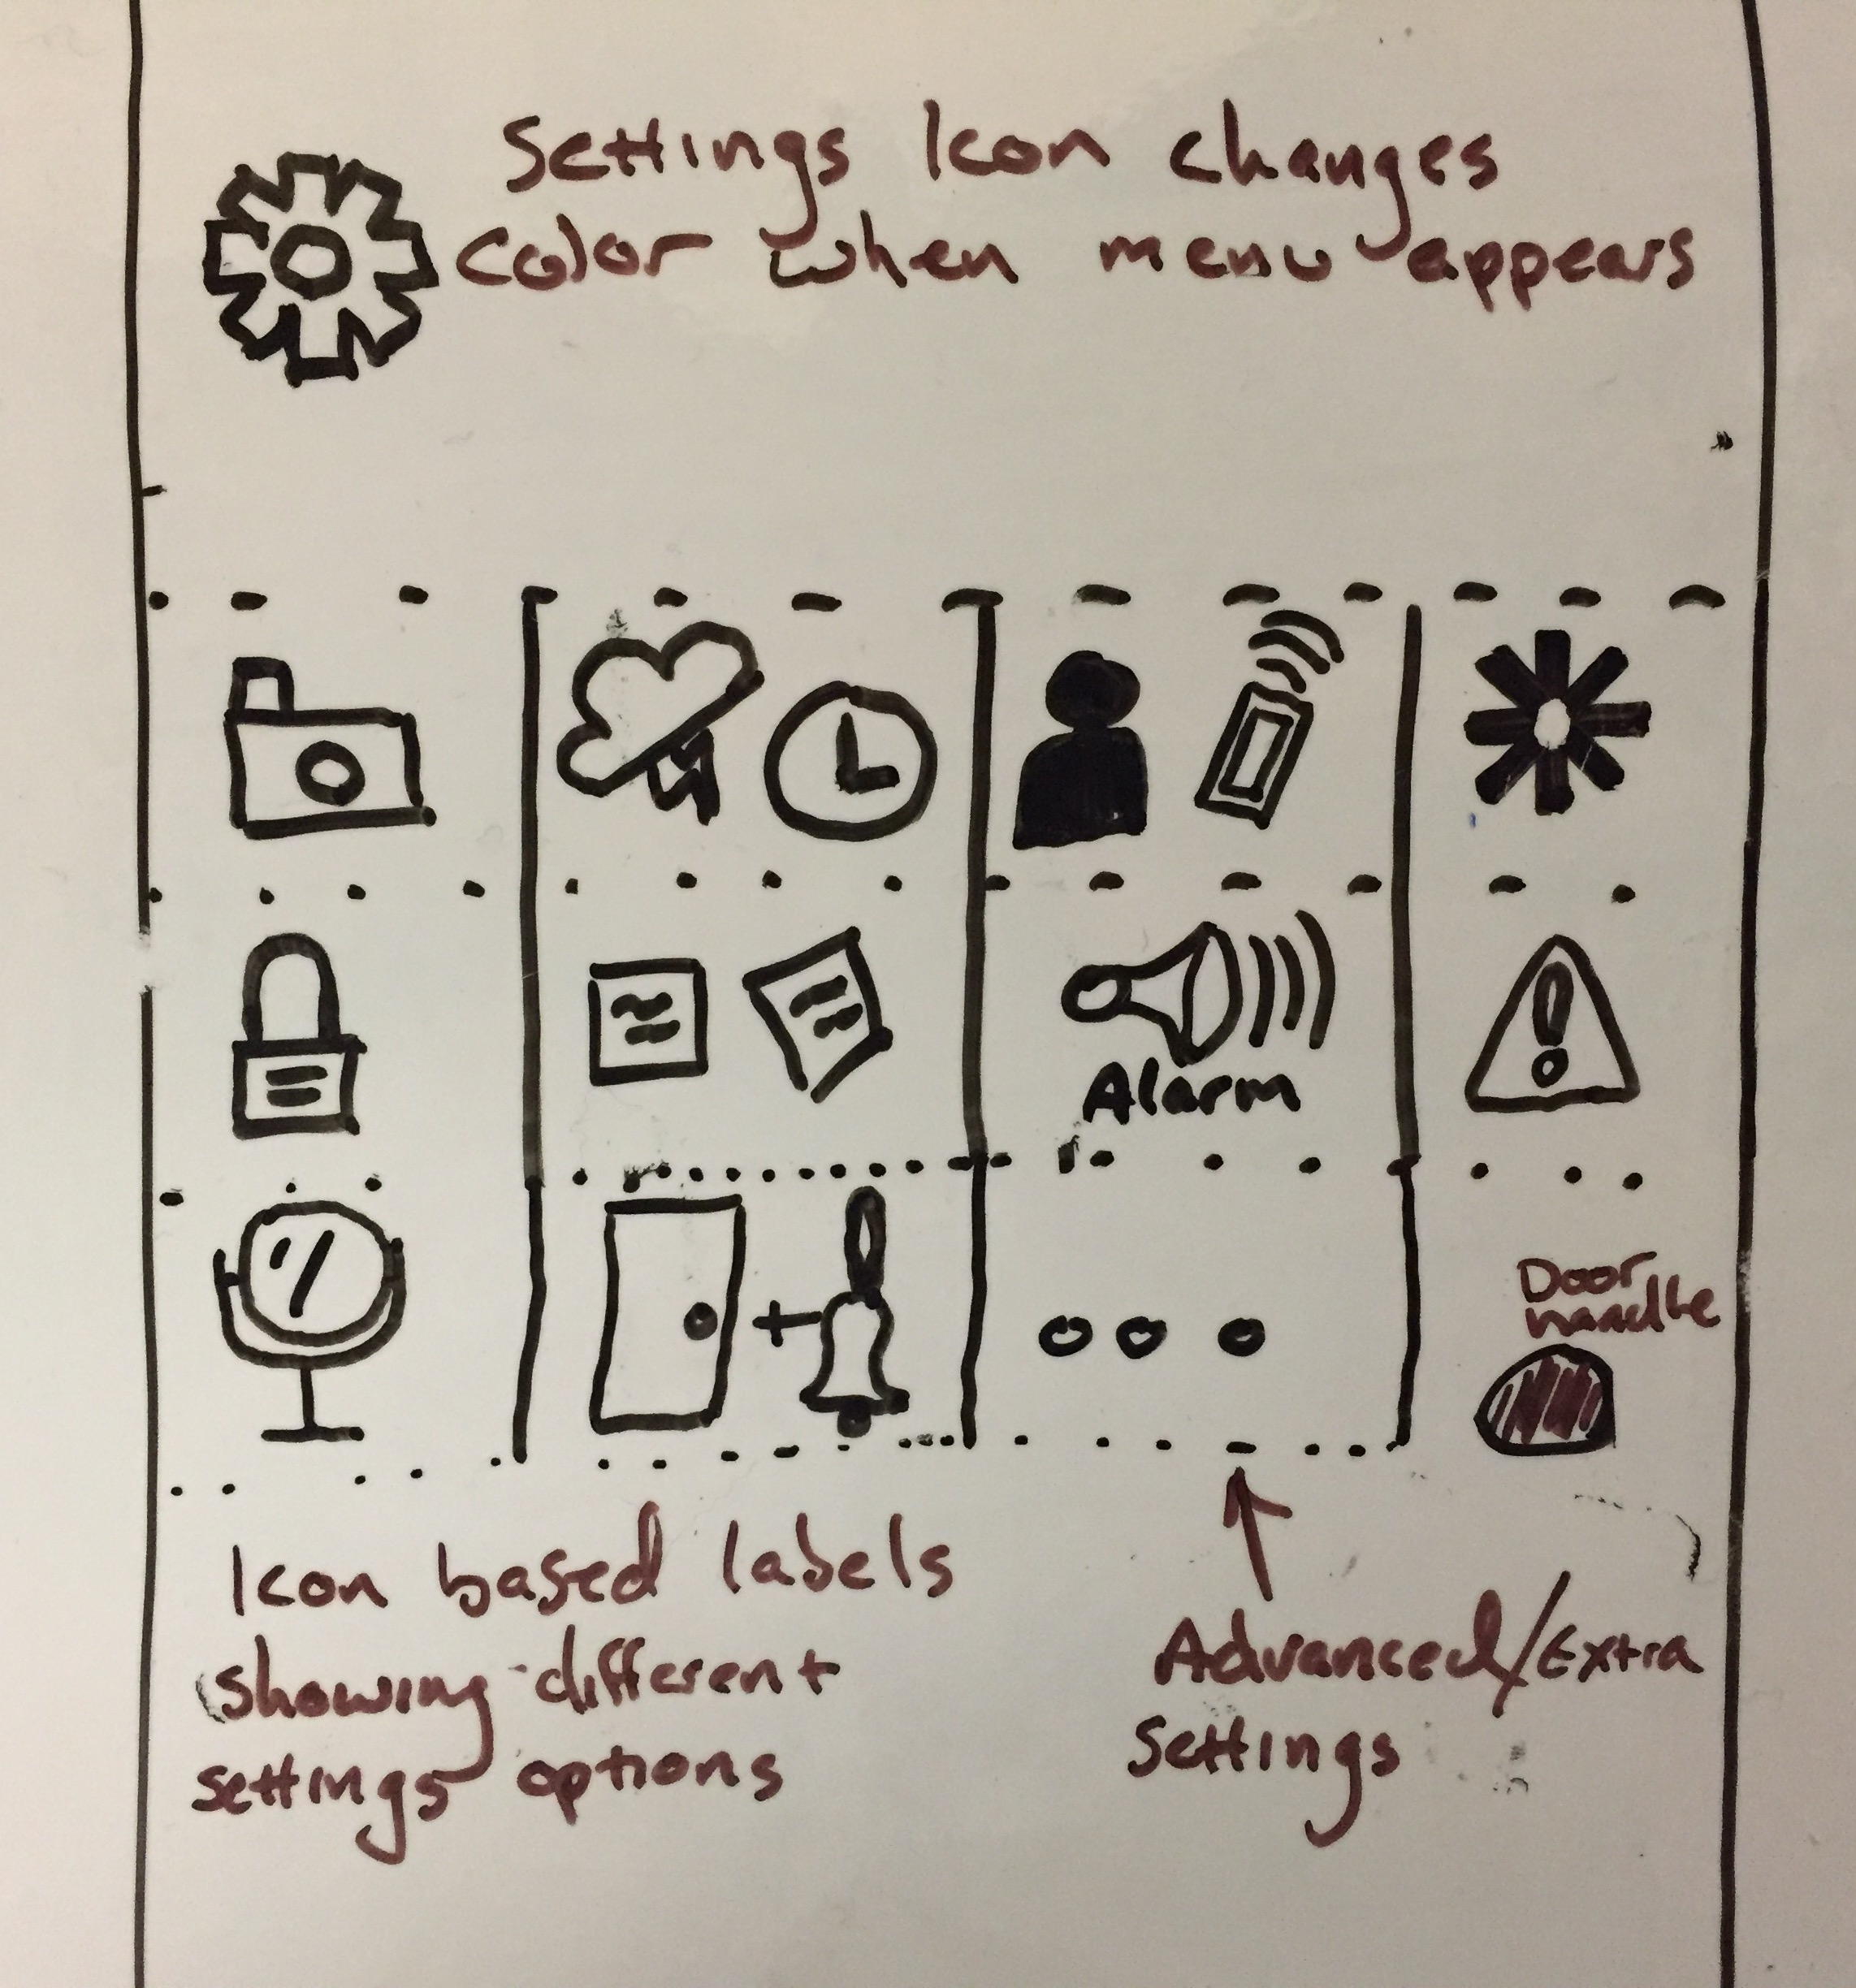 Settings Icon changes
color when menu appears
Alarm
Door
handle
Icon based labels
showing different
settings options
Advanced/Extra
Settings